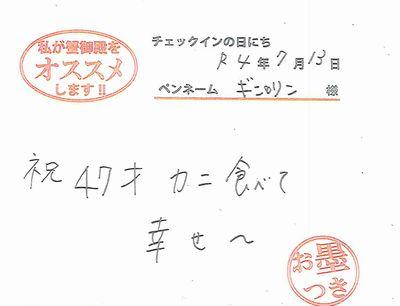 私が蟹御殿を
オススメ
します!!
チェックインの日にち
R4年7月13日
ペンネーム ギンリン 様
祝 47才 カニ 食べて
幸せ～
お墨
つき